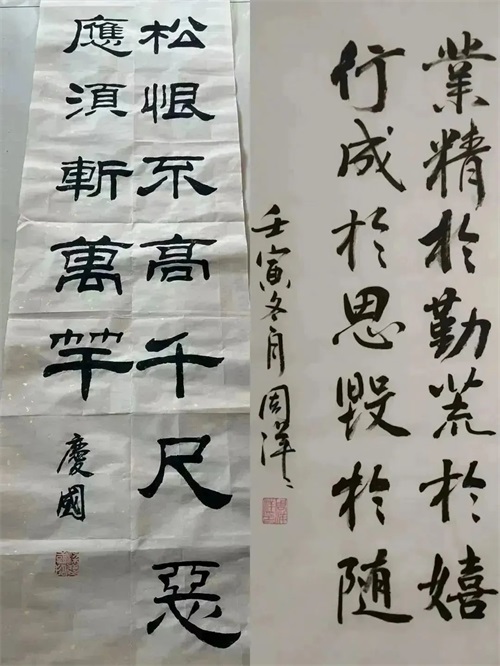 松恨不高千尺惡
應須斬萬竿
慶國
業精於勤荒於嬉
行成於思毀於随
壬寅冬月周洋